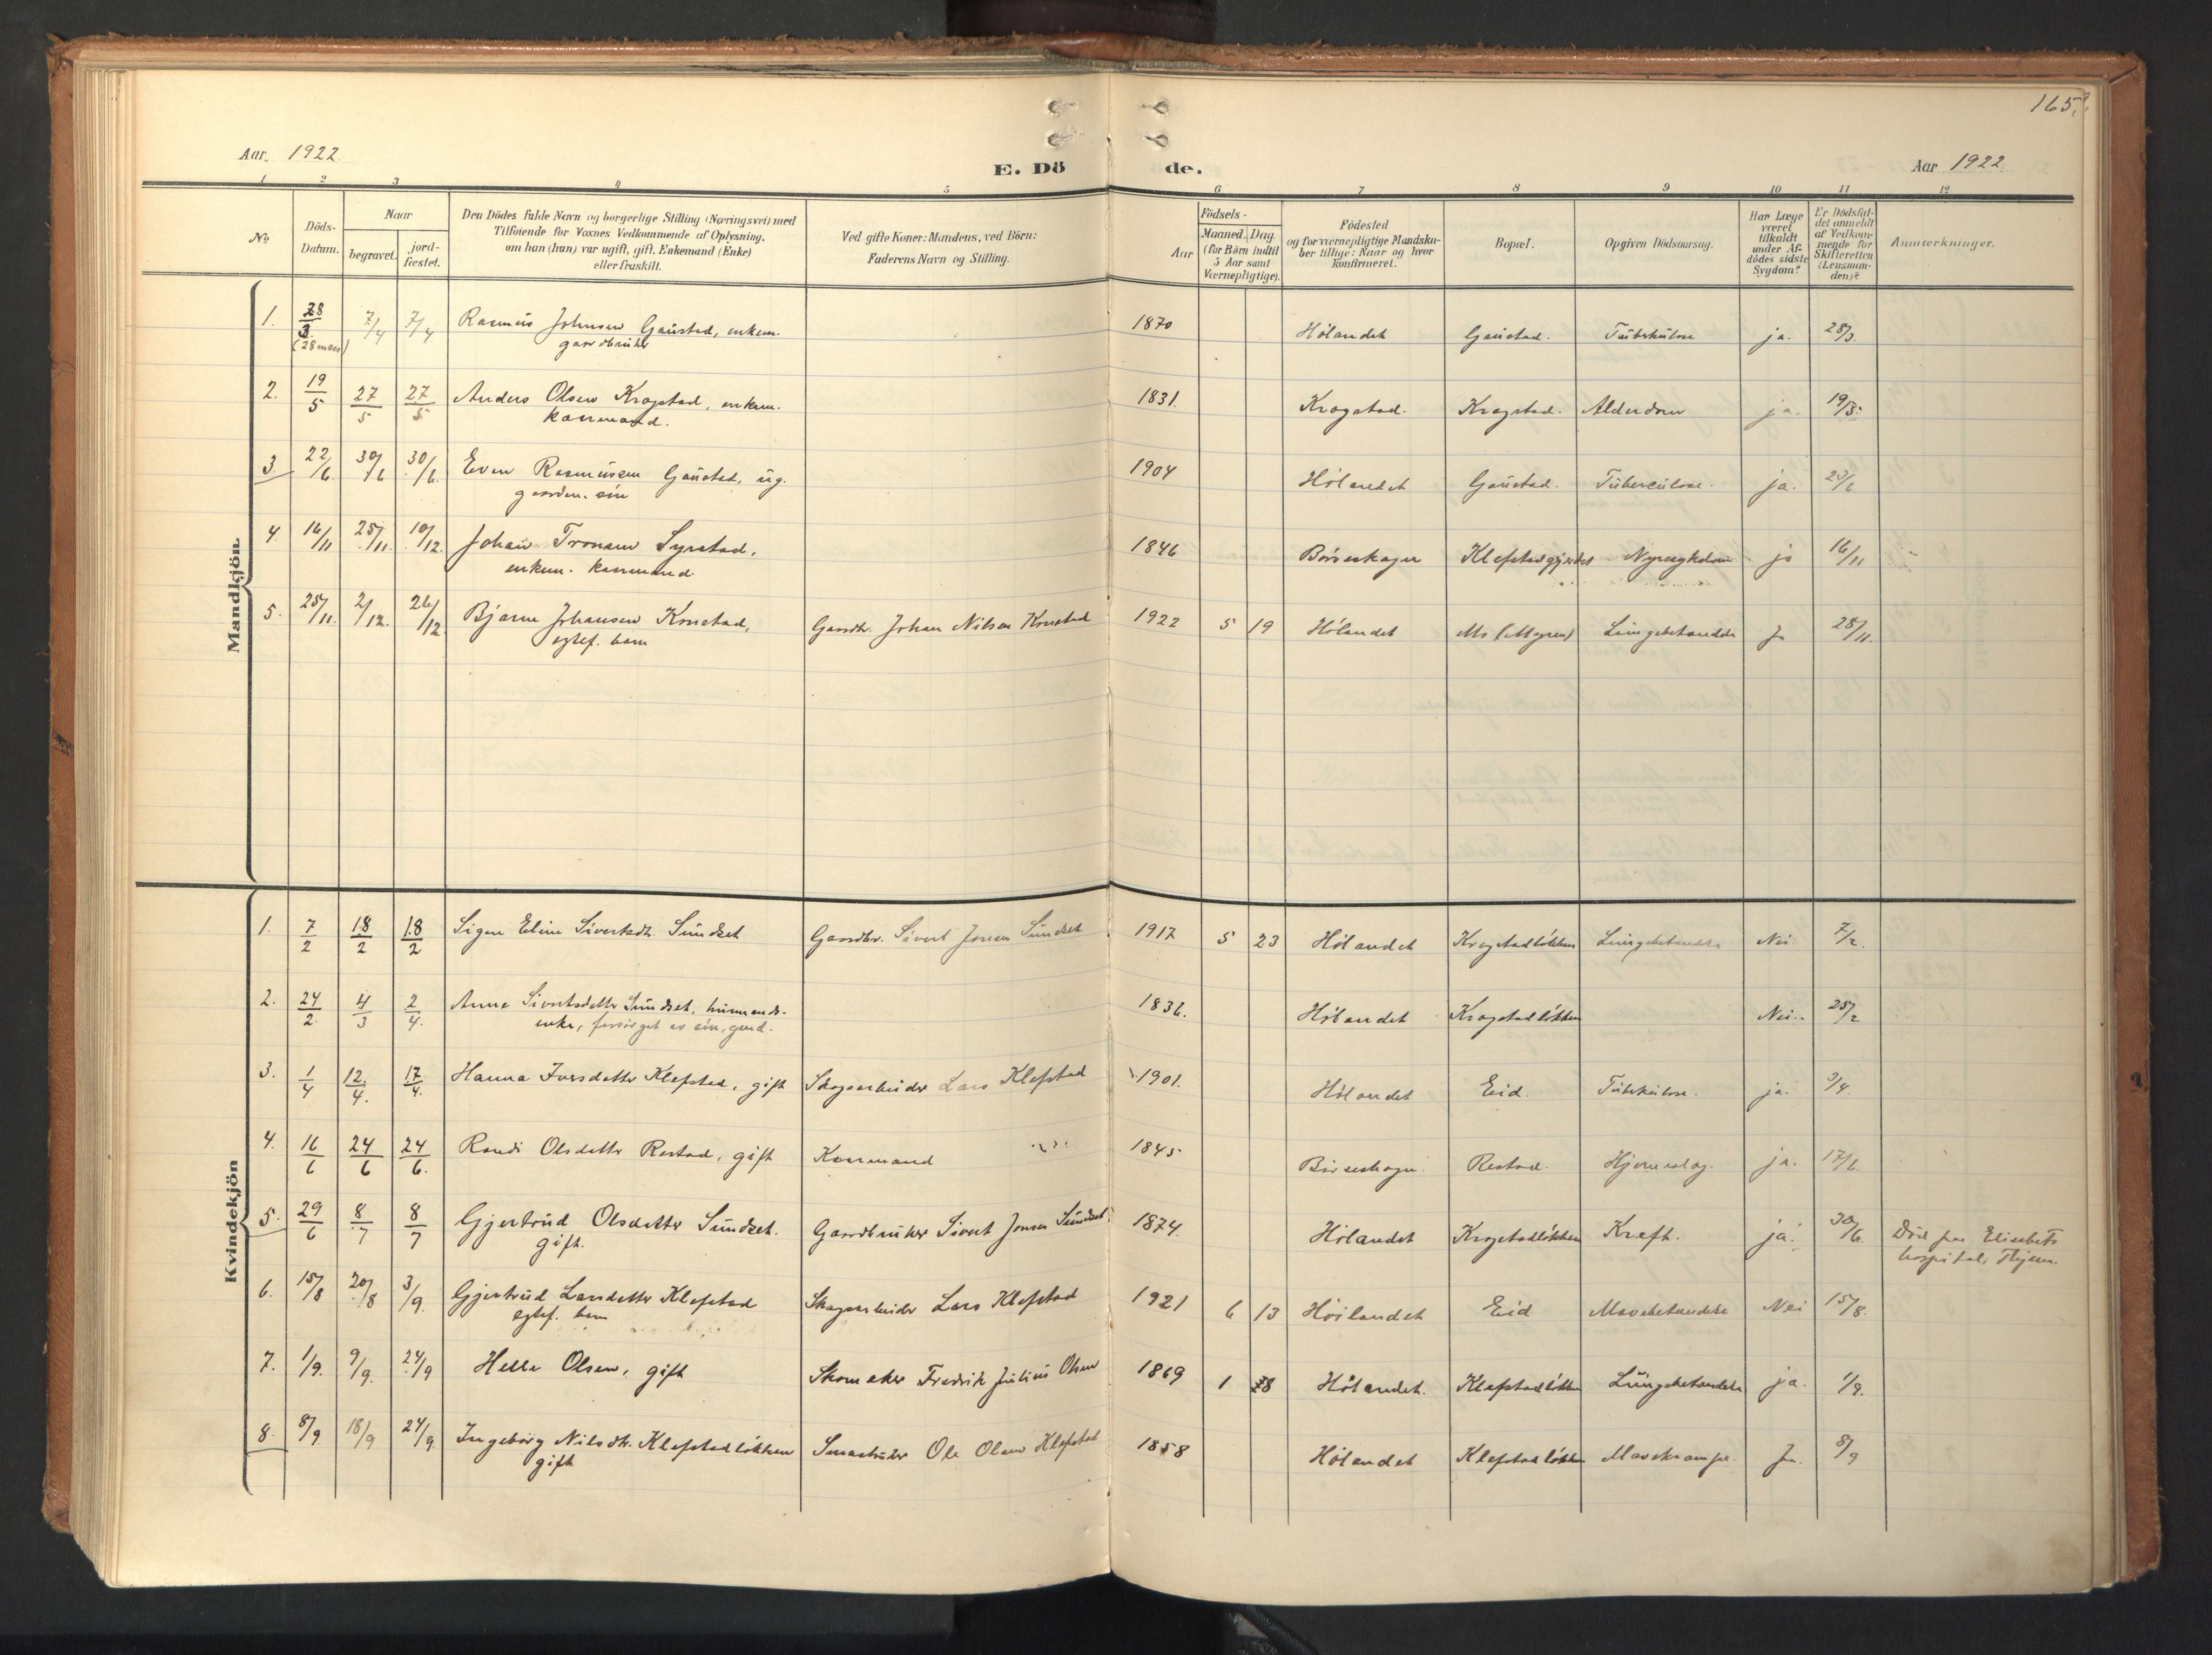 165.
Aar 1922
E. Dö
de.
Aar 1922
1 2 3 4 5 6 7 8 9 10 11 12
No
Döds-
Datum.
Naar
begravet.
jord-
fæstet.
Den Dödes fulde Navn og borgerlige Stilling (Næringsvei) med
Tilföiende for Voxnes Vedkommende af Oplysning,
om han (hun) var ugift, gift, Enkemand (Enke)
eller fraskilt.
Ved gifte Koner: Mandens, ved Börn:
Faderens Navn og Stilling.
Aar
Födsels-
Maaned. Dag.
(for Börn indtil
5 Aar samt
Værnepligtige).
Födested
og for værnepligtige Mandska-
ber tillige: Naar og hvor
konfirmeret.
Bopæl.
Opgiven Dödsaarsag.
Har Læge
været
tilkaldt
under Af-
dödes sidste
Sygdom?
Er Dödsfal-
det anmeldt
af Vedkom-
mende for
Skifteretten
(Lensman-
den)?
Anmærkninger.
Mandkjön.
1. 28/3. 7/4 7/4 Rasmus Johnsen Gaustad, enkem. 1870 Hölandet Gaustad. Tuberkulose ja. 28/3.
(28 mars) gaardbruker
2. 19/5 27/5 27/5 Anders Olsen Krogstad, enkem. 1831. Krogstad. Krogstad. Alderdom ja. 19/5.
kaarmand.
3 22/6. 30/6 30/6. Even Rasmussen Gaustad, ug. 1904 Hölandet Gaustad. Tuberculose. ja. 23/6
gaardm. sön
4. 16/11 25/11. 10/12. Johan Tronsen Syrstad, 1846 Börseskogn Klefstadgjerdet Nyresykdom ja 16/11
enkem. kaarmand.
5. 25/11. 2/12. 26/12 Bjarne Johansen Konstad, Gaardbr. Johan Nilsen Konstad 1922 5 19 Hölandet Mo (Myren) Lungebetændelse Ja 28/11.
egtef. barn
Kvindekjön
1. 7/2 18/2 18/2 Signe Eline Sivertsdtr. Sundset Gaardbr. Sivert Jonsen Sundset 1917 5 23 Hölandet Krogstadlökken Lungebetændelse Nei 7/2.
2. 24/2. 4/3 2/4. Anna Sivertsdatter Sundset, husmands- 1836. Hölandet Krogstadlökken Nei. 25/2
enke, forsörget av sön, gaard.
3. 1/4 12/4. 17/4. Hanna Iversdatter Klefstad, gift Skogsarbeider Lars Klefstad 1901. Hölandet Eid. Tuberkulose. ja. 3/4.
4. 16/6 24/6 24/6. Randi Olsdatter Restad, gift Kaarmand 1845 Börseskogn. Restad. Hjerneslag. ja. 17/6.
5. 29/6 8/7 8/7 Gjertrud Olsdatter Sundset. Gaardbruker Sivert Jonsen Sundset 1874. Hölandet Krogstadlökken Kreft. ja. 30/6. Död paa Elisabets
gift. hospital, Thjem.
6. 15/8 20/8 3/9. Gjertrud Larsdatter Klefstad Skogsarbeider Lars Klefstad 1921 6 13 Höilandet Eid Mavebetændelse Nei 15/8.
egtef. barn
7. 1/9. 9/9. 24/9 Helle Olsen, gift Skomaker Fredrik Julius Olsen 1869 1 28 Hölandet. Klefstadlökken Lungebetændelse ja. 1/9.
8. 8/9. 18/9 24/9. Ingeborg Nilsdtr. Klefstadlökken Smaabruker Ole Olsen Klefstad 1858 Hölandet Klefstadlökken Mavekrampe. Ja. 8/9
gift